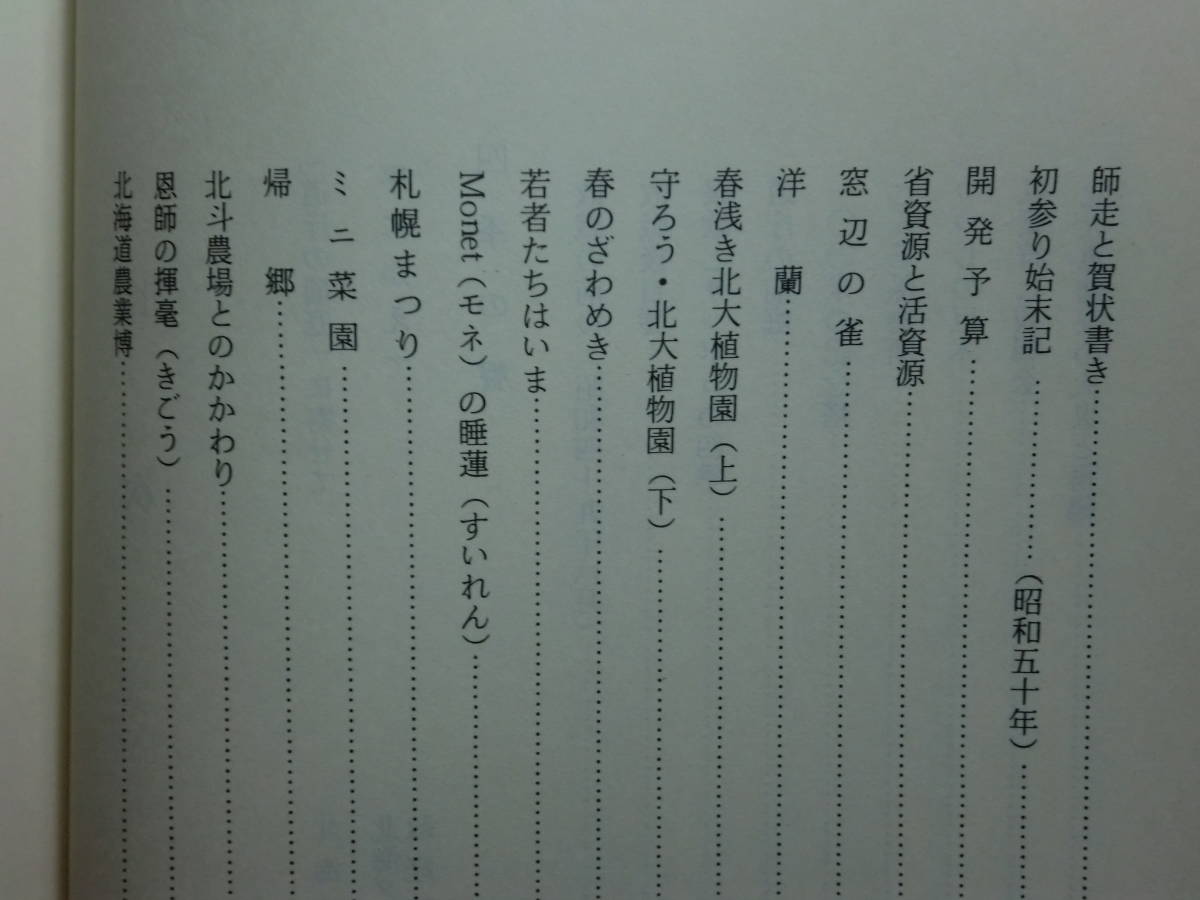 師走と賀状書き……………………
初参り始末記…………(昭和五十年)………
開発予算……………………
省資源と活資源……………………
窓辺の雀……………………
洋蘭……………………
春浅き北大植物園(上)……………………
守ろう・北大植物園(下)……………………
春のざわめき……………………
若者たちはいま……………………
Monet(モネ)の睡蓮(すいれん)……………………
札幌まつり……………………
ミニ菜園……………………
帰郷……………………
北斗農場とのかかわり……………………
恩師の揮毫(きごう)……………………
北海道農業博……………………